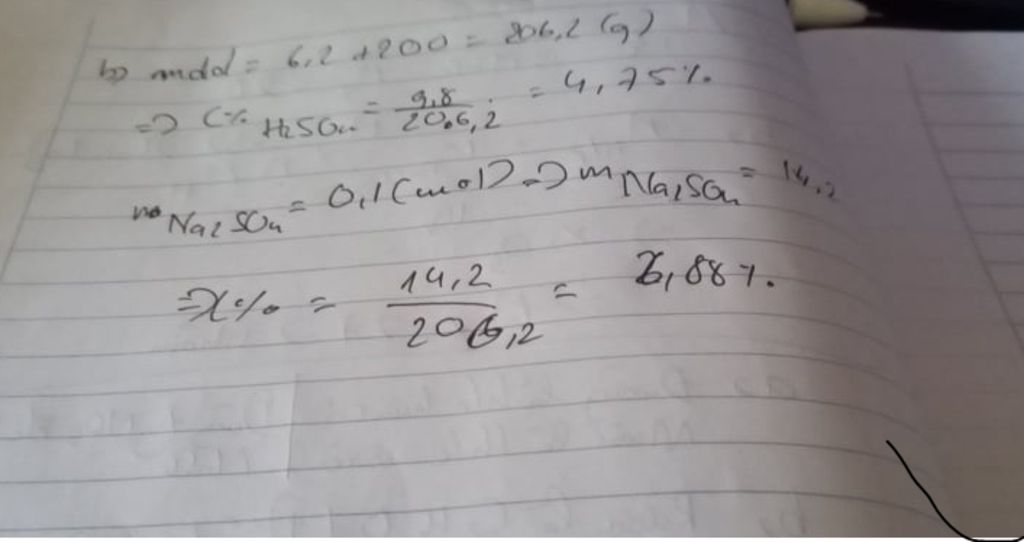 b) mdd = 6,2 + 200 = 206,2 (g)
=> C% H2SO4 = 9,8 / 206,2 = 4,75%
no Na2SO4 = 0,1 (mol) => m Na2SO4 = 14,2
=> x% = 14,2 / 206,2 = 6,88%